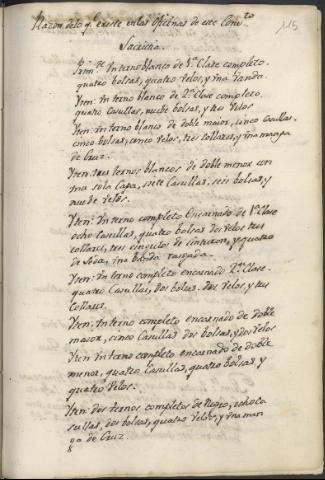 115
Razon delo q.e existe en las Oficinas de este Conv.to
Sacristia.
Prim.te Un terno blanco de 1.a Clase completo.
quatro bolsas, quatro velos, y Vna Vanda.
Yten: Vn terno blanco de 2.a Clase completo.
quatro Casullas, nuebe bolsas, y tres velos
Yten: Vn terno blanco de doble maior, cinco Casullas,
cinco bolsas, cinco velos, tres collares, y Vna manga
de Cruz.
Yten: tres ternos blancos de doble menor con
Vna sola Capa, siete Casullas, seis bolsas, y
nuebe velos.
Yten: Vn terno completo Encarnado de 1.a Clase
ocho Casullas, quatro bolsas dos velos tres
collares, tres cingulos de sinteron, y quatro
de Seda, Vna Vanda rasgada.
Yten: Vn terno completo encarnado 2.a Clase.
quatro Casullas, dos bolsas, dos velos, y tres
Collares.
Yten: Vn terno completo encarnado de doble
maior, cinco Casullas dos bolsas, y dos velos
Yten Vn terno completo encarnado de doble
menor, quatro Casullas, quatro bolsas y
quatro velos.
Yten: dos ternos completos de Negro, ocho Ca
sullas, dos bolsas, quatro velos, y Vna man
ga de Cruz.